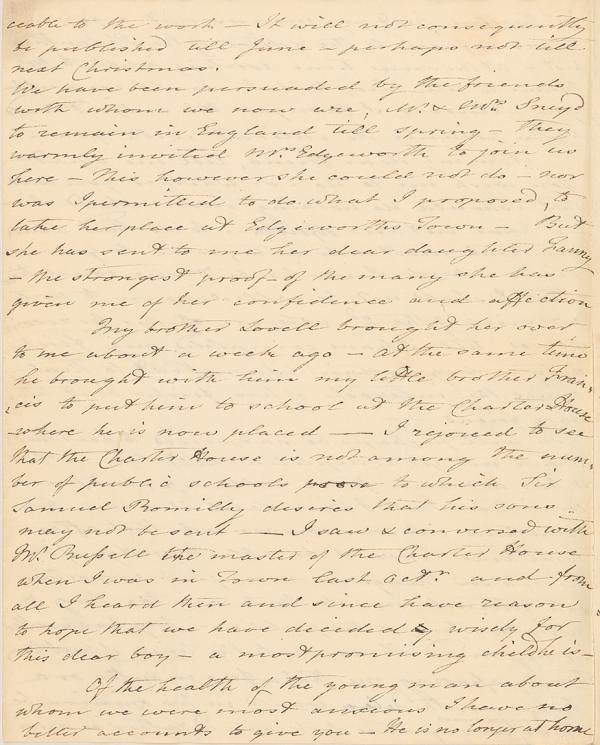 ceable to the work – It will not consequently
be published till June – perhaps not till
next Christmas.
We have been persuaded by the friends
with whom we now are, Mr. & Mrs. Sneyd
to remain in England till spring – they
warmly invited Mrs. Edgeworth to join us
here – this however she could not do – nor
was I permitted to do what I proposed, to
take her place at Edgeworths Town – But
she has sent to me her dear daughter Fanny
– the strongest proof – of the many she has
given me of her confidence and affection
My brother Lovell brought her over
to me about a week ago – at the same time
he brought with him my little brother Fran-
-cis to put him to school at the Charter House
where he is now placed — I rejoiced to see
that the Charter House is not among the num-
ber of public schools to which Sir
Samuel Romilly desires that his sons
may not be sent — I saw & conversed with
Mr. Russell the master of the Charter House
when I was in Town last Octr. and from
all I heard then and since have reason
to hope that we have decided wisely for
this dear boy – a most promising child he is –
Of the health of the young man about
whom we were most anxious I have no
better accounts to give you – He is no longer at home